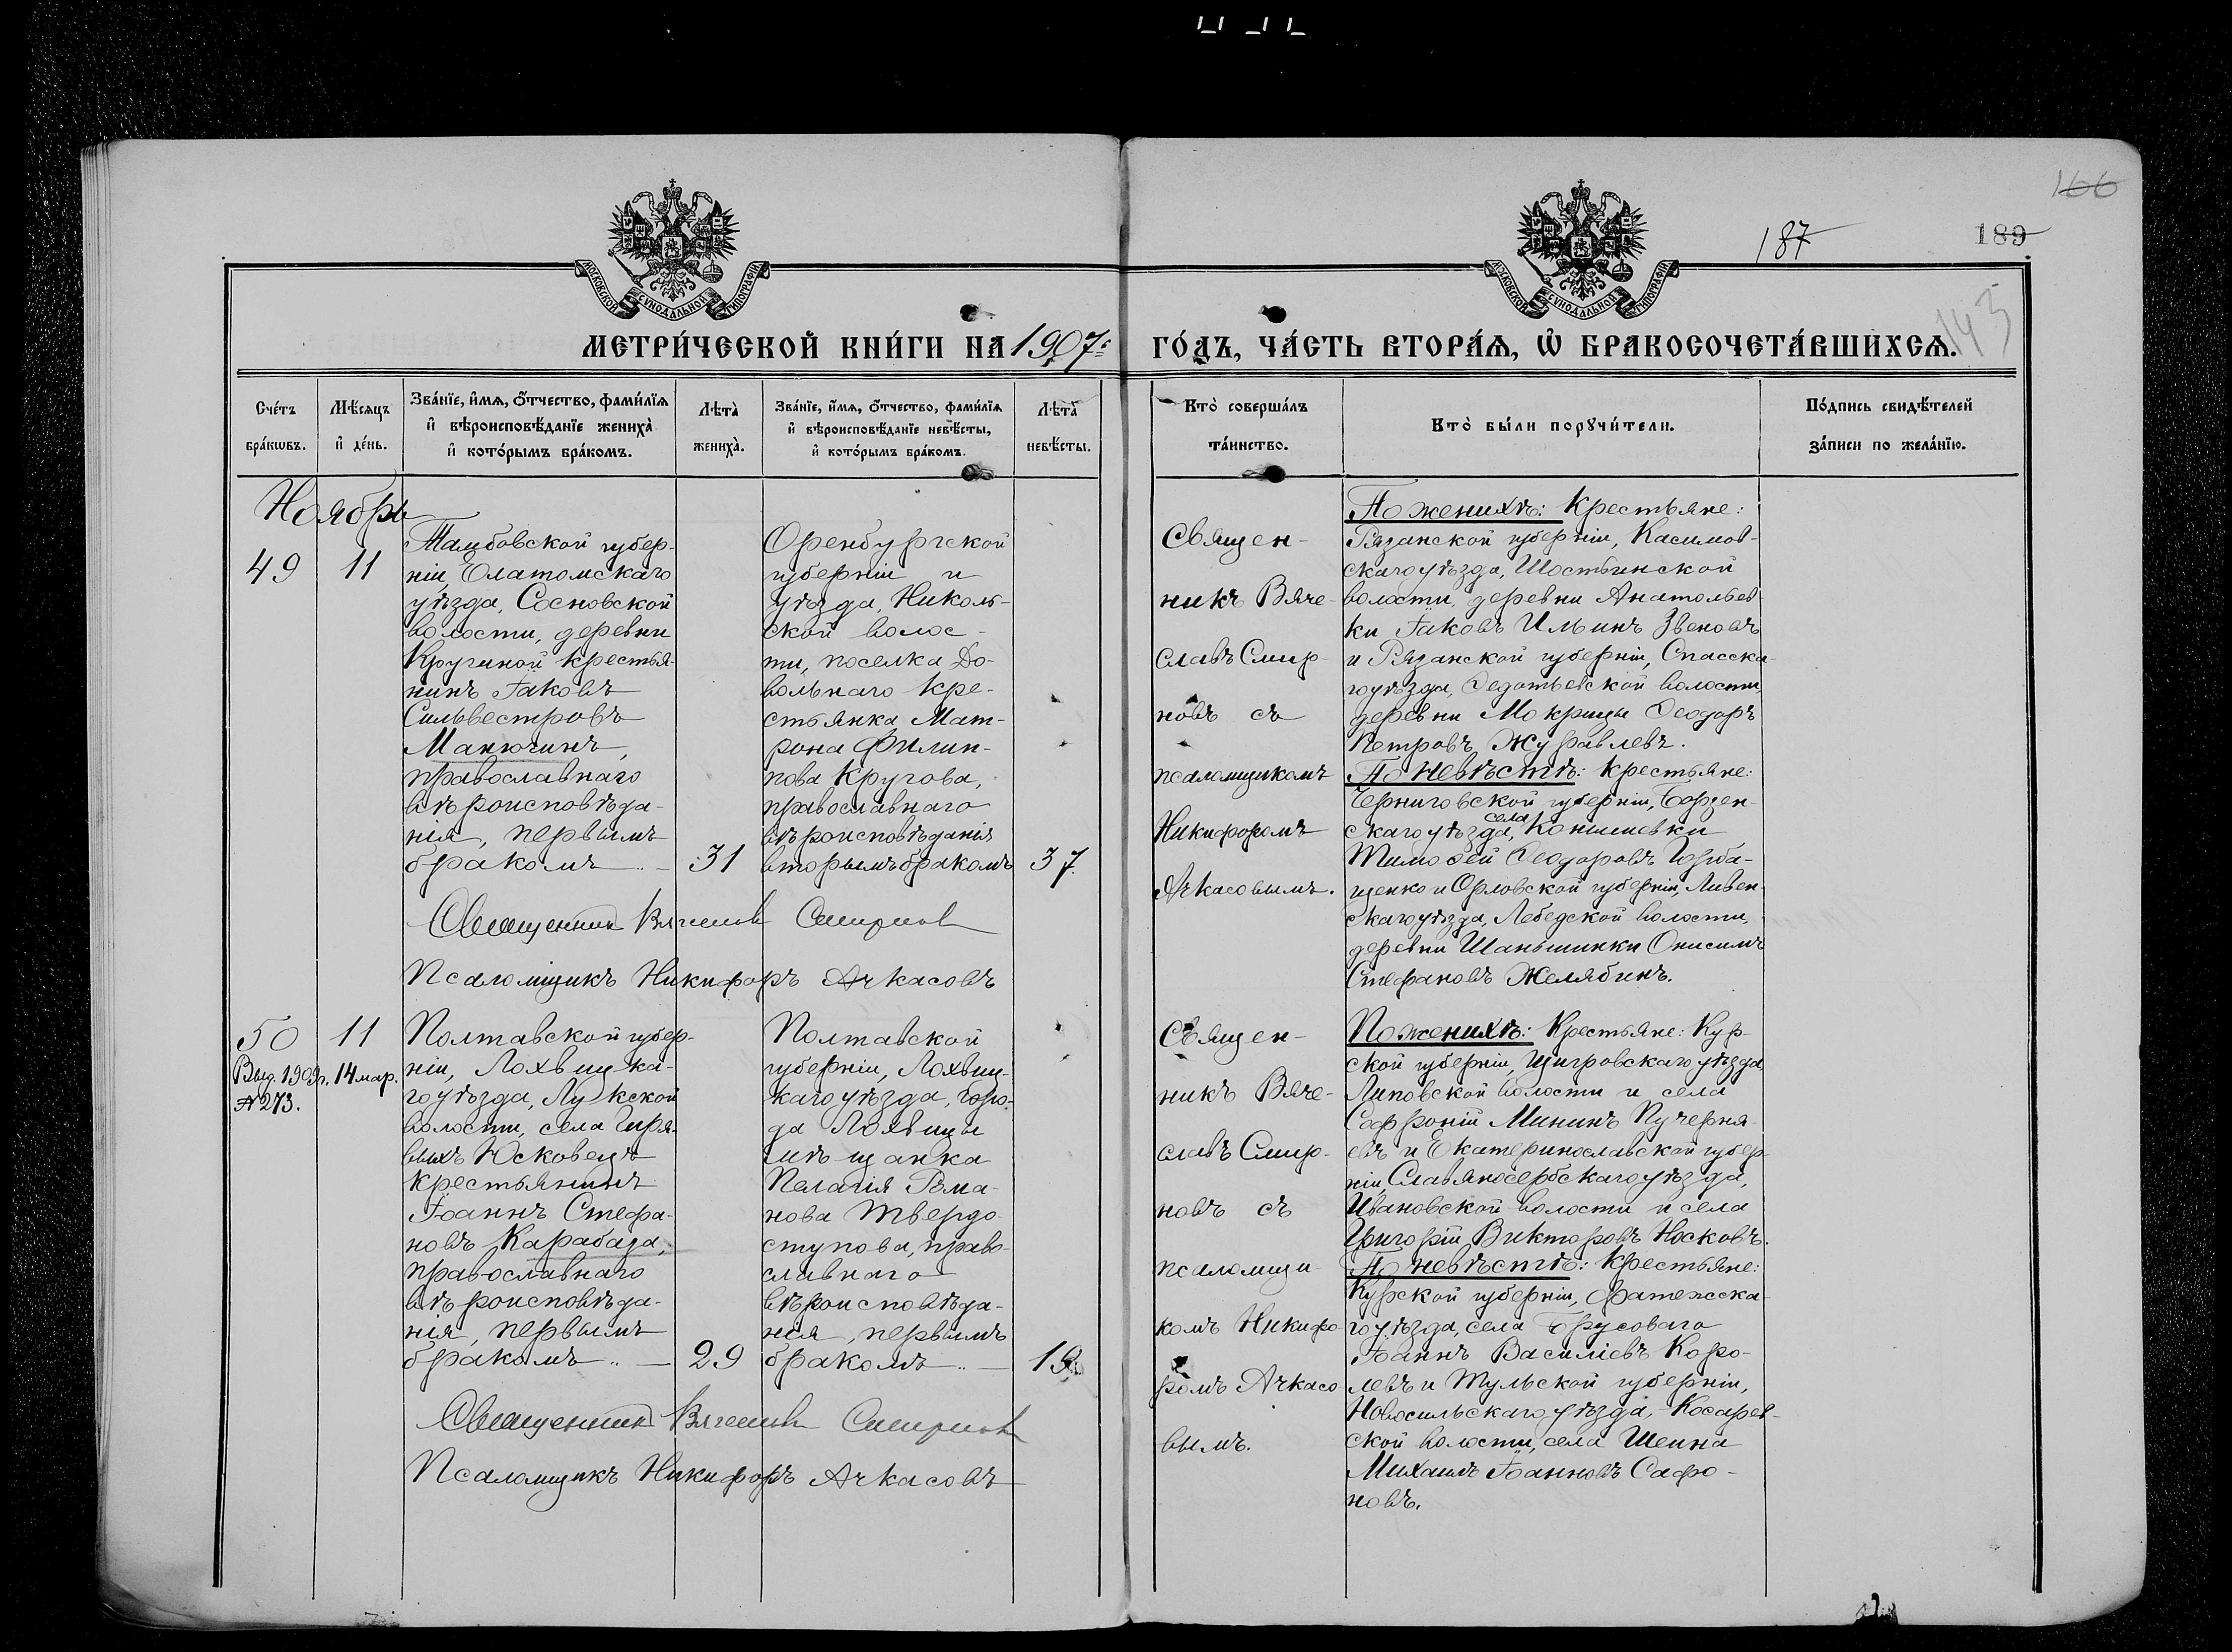 166
187
189
143
МОСКОВСКОЙ СУНОДАЛЬНОЙ ТИПОГРАФІИ
МОСКОВСКОЙ СУНОДАЛЬНОЙ ТИПОГРАФІИ
МЕТРИ́ЧЕСКОЙ КНИ́ГИ НА 1907 ГО́ДЪ, ЧА́СТЬ ВТОРА́Ѧ, Ѡ҆ БРАКОСОЧЕТА́ВШИХСѦ.
Сче́тъ бра́кѡвъ.
Мѣ́сѧцъ и҆ де́нь.
Зва́нїе, и҆́мѧ, ѻ҆́тчество, фами́лїѧ и҆ вѣроисповѣ́данїе жениха̀ и҆ кото́рымъ бра́комъ.
Лѣта̀ жениха̀.
Зва́нїе, и҆́мѧ, ѻ҆́тчество, фами́лїѧ и҆ вѣроисповѣ́данїе невѣ́сты, и҆ кото́рымъ бра́комъ.
Лѣта̀ невѣ́сты.
Кто̀ соверша́лъ та́инство.
Кто̀ бы́ли порꙋчи́тели.
По́дпись свидѣ́телей за́писи по жела́нїю.
Ноябрь
49
11
Тамбовской губер-
ніи, Елатомскаго
уѣзда, Сосновской
волости, деревни
Кругиной крестья-
нинъ Іаковъ
Сильвестровъ
Манючинъ,
православнаго
вѣроисповѣда-
нія, первымъ
бракомъ
31
Оренбургской
губерніи и
уѣзда, Николь-
ской волос-
ти, поселка До-
вольнаго кре-
стьянка Мат-
рона Филип-
пова Кругова,
православнаго
вѣроисповѣданія
вторымъ бракомъ
37
Священник Вячеслав Смирнов
Псаломщикъ Никифоръ Ачкасовъ
Священ-
никъ Вяче-
славъ Смир-
новъ съ
псаломщикомъ
Никифоромъ
Ачкасовымъ.
По женихѣ: Крестьяне:
Рязанской губерніи, Касимов-
скаго уѣзда, Шостьинской
волости, деревни Анатольев-
ки Іаковъ Ильинъ Звеновъ
и Рязанской губерніи, Спасска-
го уѣзда, Ѳедотьевской волости,
деревни Мокрицы Ѳеодоръ
Петровъ Журавлевъ.
По невѣстѣ: Крестьяне:
Черниговской губерніи, Борзен-
скаго уѣзда, села Конашевки
Тимоѳей Ѳеодоровъ Горба-
щенко и Орловской губерніи, Ливен-
скаго уѣзда, Лебедской волости,
деревни Шаньшинки Онисимъ
Стефановъ Желябинъ.
50
Выд. 1909г. 14 мар.
№ 273.
11
Полтавской губер-
ніи, Лохвицка-
го уѣзда, Лукской
волости, села Гиря-
выхъ Юсковецъ
крестьянинъ
Іоаннъ Стефа-
новъ Карабаза,
православнаго
вѣроисповѣда-
нія, первымъ
бракомъ
29
Полтавской
губерніи, Лохвиц-
каго уѣзда, горо-
да Лохвицы
мѣщанка
Пелагія Рома-
нова Твердо-
ступова, право-
славнаго
вѣроисповѣда-
нія, первымъ
бракомъ
19
Священник Вячеслав Смирнов
Псаломщикъ Никифоръ Ачкасовъ
Священ-
никъ Вяче-
славъ Смир-
новъ съ
псаломщи-
комъ Никифо-
ромъ Ачкасо-
вымъ.
По женихѣ: Крестьяне: Кур-
ской губерніи, Щигровскаго уѣзда
Липовской волости и села
Софроній Мининъ Пучерня-
евъ и Екатеринославской губер-
ніи, Славяносербскаго уѣзда,
Ивановской волости и села
Григорій Викторовъ Носковъ.
По невѣстѣ: Крестьяне:
Курской губерніи, Фатежска-
го уѣзда, села Брусоваго
Іоаннъ Василіевъ Коро-
левъ и Тульской губерніи,
Новосильскаго уѣзда, Косарев-
ской волости, села Шеина
Михаилъ Іоанновъ Сафо-
новъ.